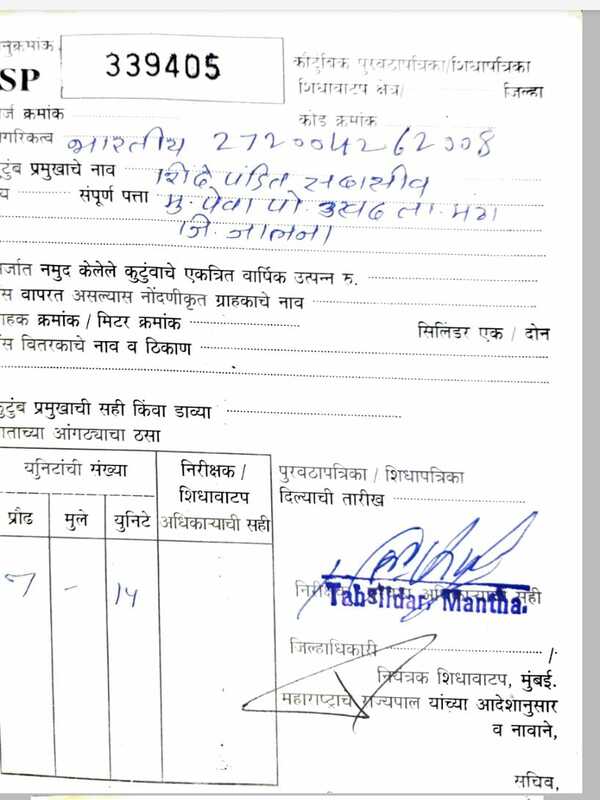 नुक्रमांक
SP
339405
कौटुंबिक पुरवठापत्रिका/शिधापत्रिका
शिधावाटप क्षेत्र/ जिल्हा
र्ज क्रमांक
कोड क्रमांक
ागरिकत्व भारतीय 272004262008
टुंब प्रमुखाचे नाव शिंदे पंडित सदाशीव
य संपूर्ण पत्ता मु. पेवा पो. उस्वद ता. मंठा
जि. जालना
र्जात नमुद केलेले कुटुंवाचे एकत्रित वार्षिक उत्पन्न रु.
स वापरत असल्यास नोंदणीकृत ग्राहकाचे नाव
ाहक क्रमांक / मिटर क्रमांक
सिलिंडर एक / दोन
स वितरकाचे नाव व ठिकाण
टुंब प्रमुखाची सही किंवा डाव्या
ाताच्या आंगठ्याचा ठसा
युनिटांची संख्या
निरीक्षक /
शिधावाटप
अधिकाऱ्याची सही
प्रौढ मुले युनिटे
7 - 14
पुरवठापत्रिका / शिधापत्रिका
दिल्याची तारीख
निरीक्षक अधिकाऱ्याची सही
Tahsildar, Mantha.
जिल्हाधिकारी /
नियंत्रक शिधावाटप, मुंबई.
महाराष्ट्राचे राज्यपाल यांच्या आदेशानुसार
व नावाने,
सचिव,